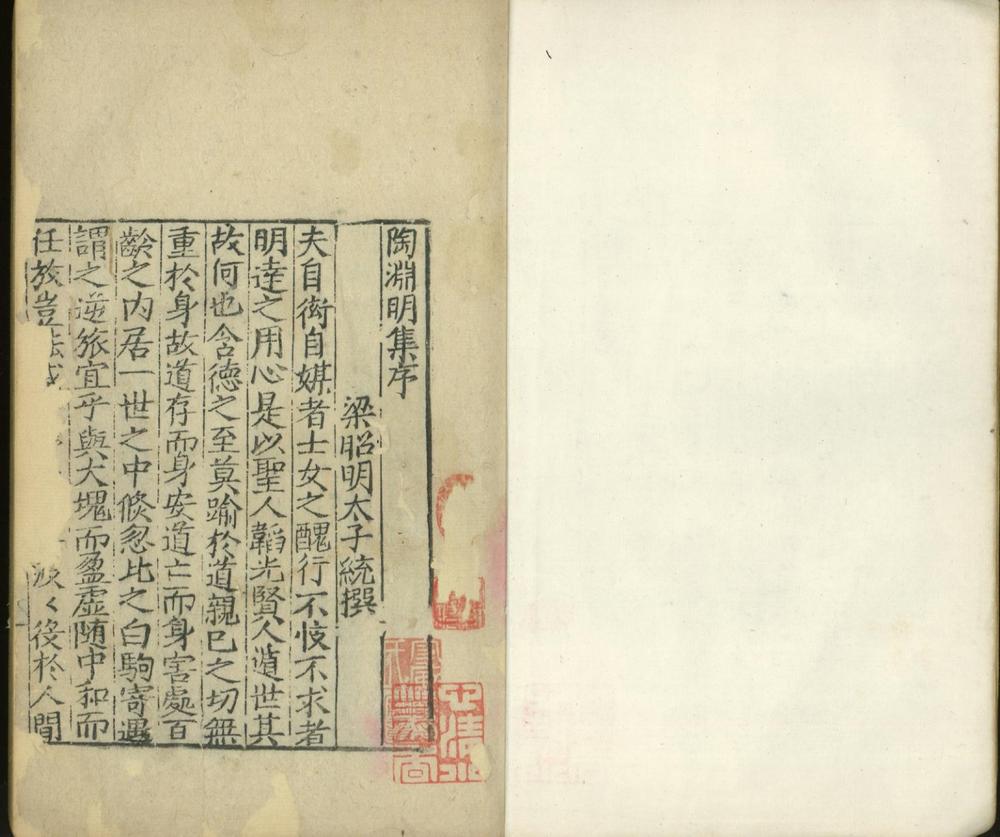 陶淵明集序
梁昭明太子統撰
夫自衒自媒者士女之醜行不忮不求者
明達之用心是以聖人韜光賢人遁世其
故何也含德之至莫踰於道親巳之切無
重於身故道存而身安道亡而身害處百
齡之内居一世之中倐忽比之白駒寄遇
謂之逆旅宜乎與大塊而盈虛随中和而
任放豈 役於人間